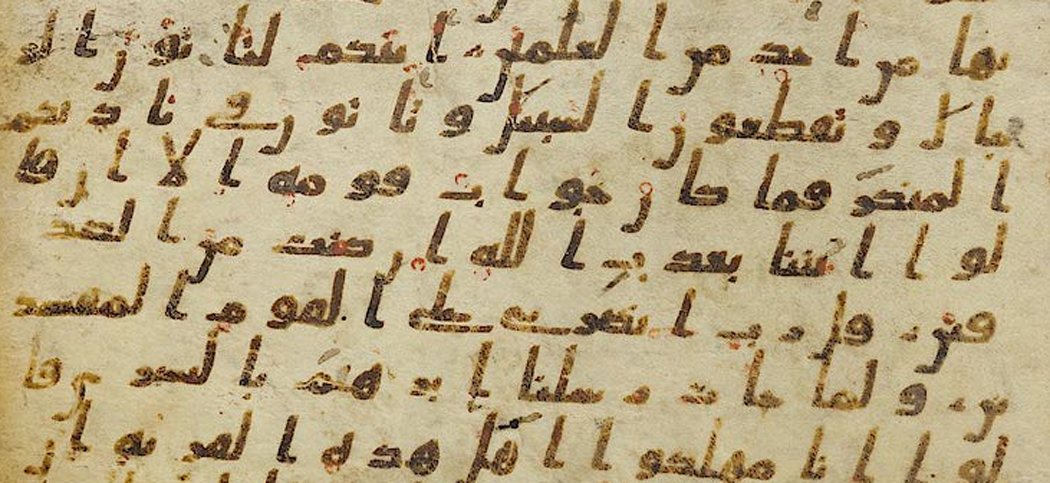 بها من احد من العلمين اىنكم لتاتون الر
جال وتقطعون السبيل وتاتون في ناديكم
المنكر فما كان جواب قومه الا ان قا
لوا ائتنا بعذاب الله ان كنت من الصد
قين قال رب انصرني على القوم المفسد
ين ولما جات رسلنا ابرهيم بالبشرى قا
لوا انا مهلكوا اهل هذه القرية ان